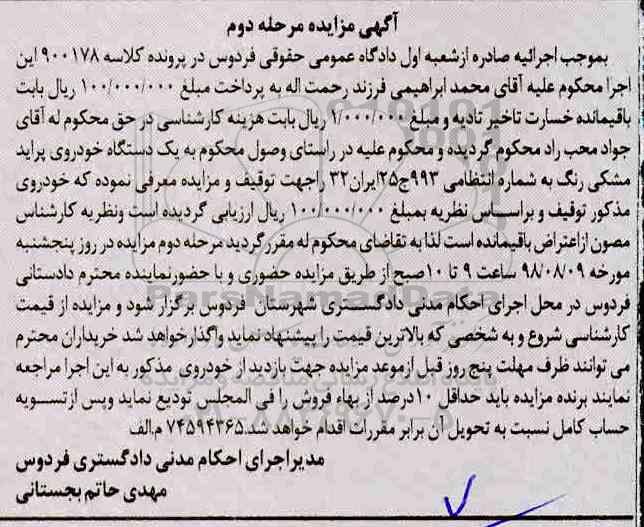 آگهی مزایده مرحله دوم
بموجب اجرائیه صادره ازشعبه اول دادگاه عمومی حقوقی فردوس در پرونده کلاسه ۹۰۰۱۷۸ این
اجرا محکوم علیه آقای محمد ابراهیمی فرزند رحمت اله به پرداخت مبلغ ۱۰۰/۰۰۰/۰۰۰ ریال بابت
باقیمانده خسارت تاخیر تادیه و مبلغ ۱/۰۰۰/۰۰۰ ریال بابت هزینه کارشناسی در حق محکوم له آقای
جواد محب راد محکوم گردیده و محکوم علیه در راستای وصول محکوم به یک دستگاه خودروی پراید
مشکی رنگ به شماره انتظامی ۹۹۳ج۲۵ایران۳۲ راجهت توقیف و مزایده معرفی نموده که خودروی
مذکور توقیف و براساس نظریه بمبلغ ۱۰۰/۰۰۰/۰۰۰ ریال ارزیابی گردیده است ونظریه کارشناس
مصون ازاعتراض باقیمانده است لذا به تقاضای محکوم له مقررگردید مرحله دوم مزایده در روز پنجشنبه
مورخه ۹۸/۰۸/۰۹ ساعت ۹ تا ۱۰صبح از طریق مزایده حضوری و با حضورنماینده محترم دادستانی
فردوس در محل اجرای احکام مدنی دادگستری شهرستان فردوس برگزار شود و مزایده از قیمت
کارشناسی شروع و به شخصی که بالاترین قیمت را پیشنهاد نماید واگذارخواهد شد خریداران محترم
می توانند ظرف مهلت پنج روز قبل ازموعد مزایده جهت بازدید از خودروی مذکور به این اجرا مراجعه
نمایند برنده مزایده باید حداقل ۱۰درصد از بهاء فروش را فی المجلس تودیع نماید وپس ازتسویه
حساب کامل نسبت به تحویل آن برابر مقررات اقدام خواهد شد.۷۴۵۹۴۳۶۵ م.الف
مدیراجرای احکام مدنی دادگستری فردوس
مهدی حاتم بجستانی
ParsNamadData